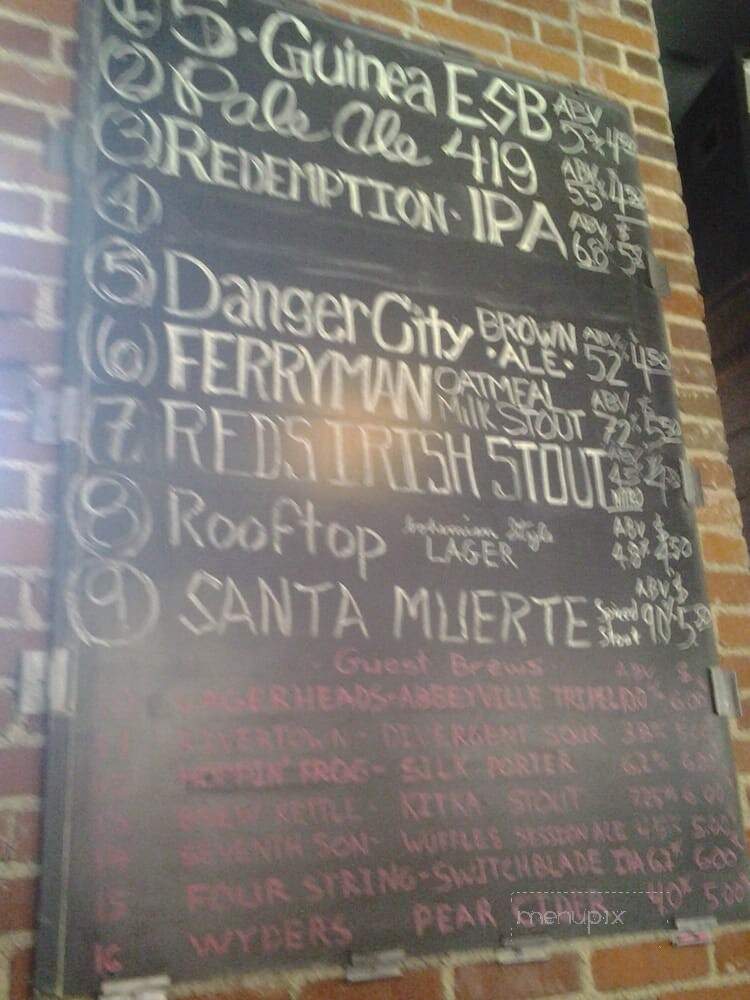 1 5·Guinea ESB ABV 5.9% 4.50
2 Pale Ale 419 ABV 5.5 4.50
3 REDEMPTION· IPA ABV $ 6.8% 5.50
4
5 Danger City BROWN ·ALE· ABV 5.2% 4.50
6 FERRYMAN OATMEAL MILK STOUT ABV $ 7.2% 5.50
7 RED'S IRISH STOUT NITRO
8 Rooftop Bohemian Style LAGER ABV $ 4.8% 4.50
9 SANTA MUERTE Spiced Stout ABV $ 9.0% 5.50
· Guest Brews · ABV $
LAGERHEADS-ABBEYVILLE TRIPEL 10.0% 6.00
RIVERTOWN- DIVERGENT SOUR 3.8%
HOPPIN' FROG- SILK PORTER 6.2% 6.00
13 BREW KETTLE- KITKA STOUT 7.25% 6.00
14 SEVENTH SON- WUFFLES SESSION ALE 4.5% 5.00
15 FOUR STRING-SWITCHBLADE 6.2% 6.00
16 WYDERS PEAR CIDER 4.0% 5.00
menupix